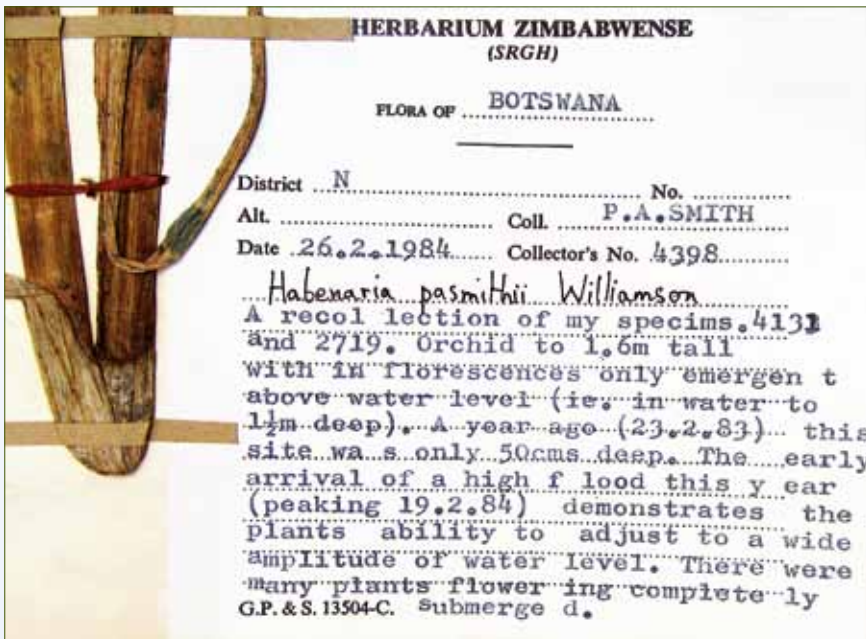 HERBARIUM ZIMBABWENSE
(SRGH)
FLORA OF BOTSWANA
District N No.
Alt. Coll. P.A.SMITH
Date 26.2.1984 Collector's No. 4398
Habenaria pasmithii Williamson
A recol lection of my specims.4131
and 2719. Orchid to 1.6m tall
with in florescences only emergen t
above water level (ie. in water to
1½m deep). A year ago (23.2.83) this
site wa s only 50cms deep. The early
arrival of a high f lood this y ear
(peaking 19.2.84) demonstrates the
plants ability to adjust to a wide
amplitude of water level. There were
many plants flower ing complete ly
G.P. & S. 13504-C. submerge d.